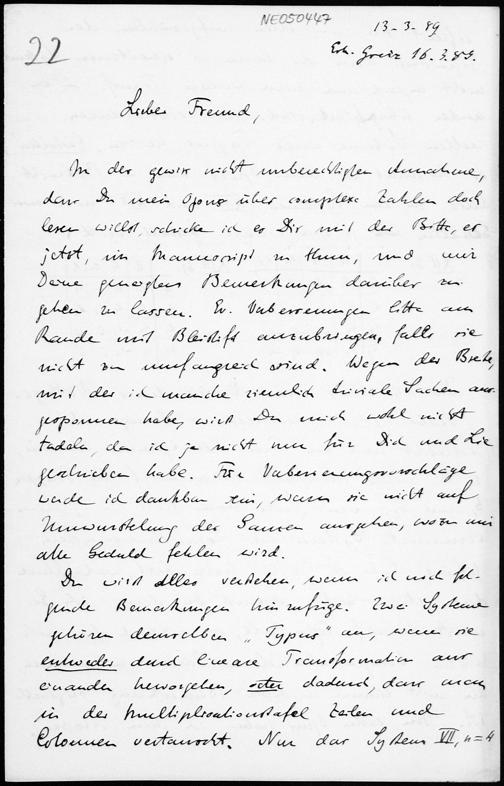 NE050447
13-3-89
Erh. Greiz 16.3.89.
22
Lieber Freund,
In der gewiss nicht unberechtigten Annahme,
dass Du mein Opus über complexe Zahlen doch
lesen willst, schicke ich es Dir mit der Bitte, es
jetzt, im Manuscript zu thun, und mir
Deine geneigten Bemerkungen darüber zu-
gehen zu lassen. Ev. Verbesserungen bitte am
Rande mit Bleistift anzubringen, falls sie
nicht zu umfangreich sind. Wegen der Breite,
mit der ich manche ziemlich triviale Sachen aus-
gesponnen habe, wirst Du mich wohl nicht
tadeln, da ich ja nicht nur für Dich und Lie
geschrieben habe. Für Verbesserungsvorschläge
werde ich dankbar sein, wenn sie nicht auf
Umwurstelung des Ganzen ausgehen, wozu mir
alle Geduld fehlen wird.
Du wirst alles verstehen, wenn ich noch fol-
gende Bemerkungen hinzufüge. Zwei Systeme
gehören demselben „Typus" an, wenn sie
entweder durch lineare Transformation aus
einander hervorgehen, oder dadurch, dass man
in der Multiplicationstafel Zeilen und
Colonnen vertauscht. Nur das System VII, n=4